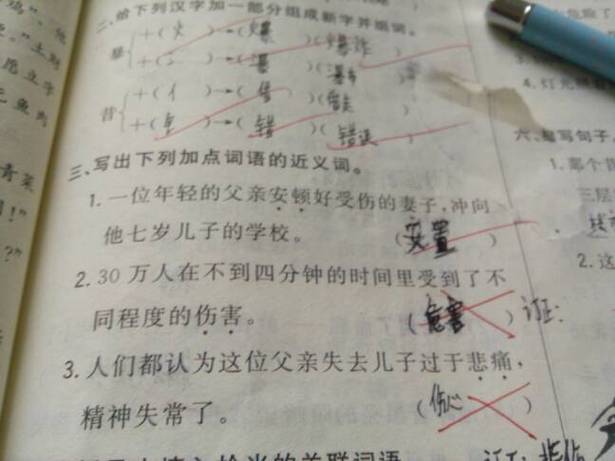 二、给下列汉字加一部分组成新字并组词。
暴 +(火)→(爆)(爆炸)
+( )→(瀑)(瀑布)
昔 +(亻)→(借)(借走)
+(钅)→(错)(错误)
三、写出下列加点词语的近义词。
1. 一位年轻的父亲安顿好受伤的妻子,冲向
他七岁儿子的学校。 (安置)
2. 30万人在不到四分钟的时间里受到了不
同程度的伤害。 (危害) 订正:
3. 人们都认为这位父亲失去儿子过于悲痛,
精神失常了。 (伤心)
订正: 悲伤
恰当的关联词语
4. 灯光
六、
写句子
1. 那个
三层
2. 这
青菜